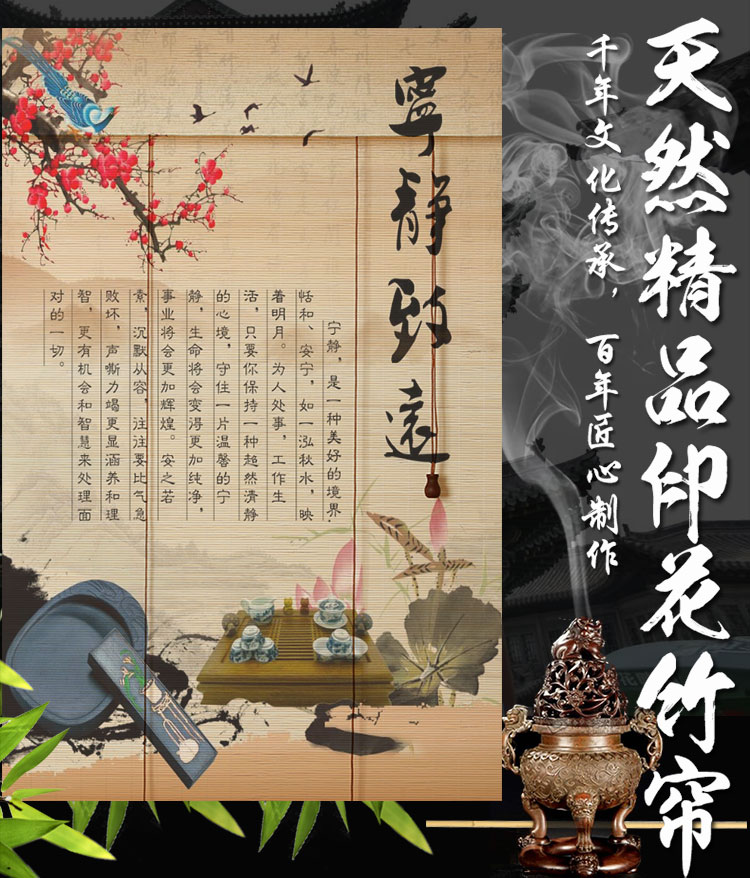 天然精品印花竹帘
千年文化传承，百年匠心制作
寧静致遠
宁静，是一种美好的境界，
恬和、安宁，如一泓秋水，映
着明月。为人处事，工作生
活，只要你保持一种超然清静
的心境，守住一片温馨的宁
静，生命将会变得更加纯净，
事业将会更加辉煌。安之若
素，沉默从容，往往要比气急
败坏，声嘶力竭更显涵养和理
智，更有机会和智慧来处理面
对的一切。